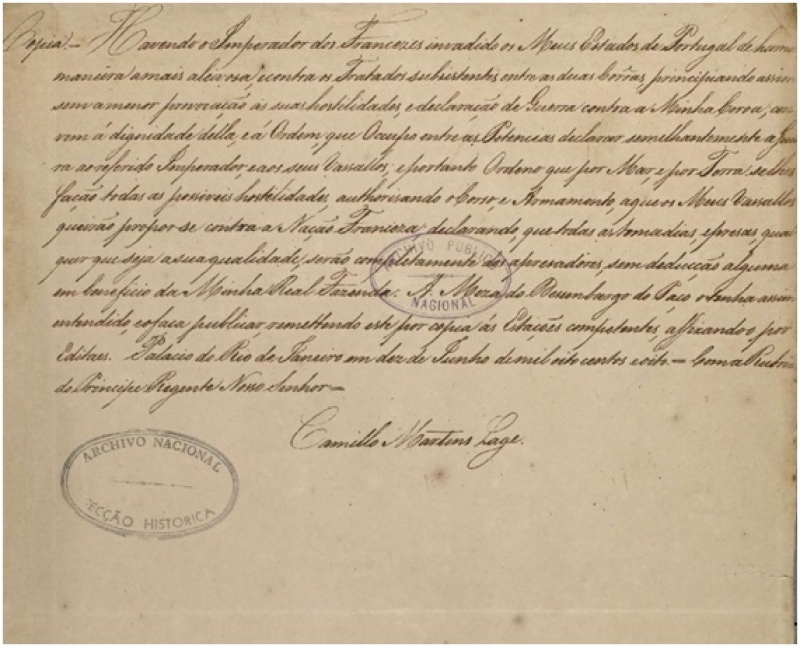 Copia.– Havendo o Imperador dos Francezes invadido os Meus Estados de Portugal de huma
maneira a mais aleivosa, e contra os Tratados subsistentes entre as duas Corôas, principiando assim
sem a menor provocação as suas hostilidades, e declaração de Guerra contra a Minha Coroa; con-
vem á dignidade della, e á Ordem, que Occupo entre as Potencias declarar semelhantemente a Guer-
ra ao referido Imperador e aos seus Vassallos; e portanto Ordeno que por Mar, e por Terra se lhes
fação todas as possiveis hostilidades, authorisando o Corso, e Armamento, a que os Meus Vassallos
queirão propor-se contra a Nação Franceza; declarando, que todas as tomadias, e presas, qual-
quer que seja a sua qualidade, serão completamente dos apresadores, sem deducção alguma
em beneficio da Minha Real Fazenda. A Meza do Desembargo do Paço o tenha assim
entendido, e o faça publicar, remettendo este por copia ás Estações competentes, e affixando o por
Editaes. Palacio do Rio de Janeiro em dez de Junho de mil oito centos e oito.— Com a Rubrica
do Principe Regente Nosso Senhor—
Camillo Martins Lage.
ARCHIVO PUBLICO
NACIONAL
ARCHIVO NACIONAL
SECÇÃO HISTORICA